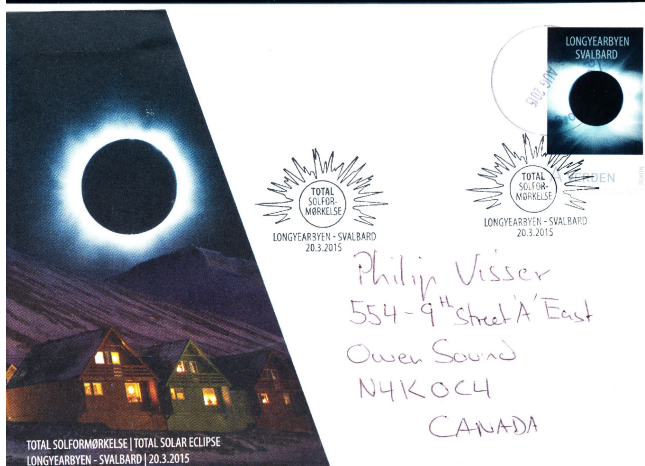 LONGYEARBYEN
SVALBARD
AUG 2015
VERDEN
TOTAL
SOLFOR-
MØRKELSE
LONGYEARBYEN - SVALBARD
20.3.2015
TOTAL
SOLFOR-
MØRKELSE
LONGYEARBYEN - SVALBARD
20.3.2015
Philip Visser
554 - 9th Street 'A' East
Owen Sound
N4K 0C4
CANADA
TOTAL SOLFORMØRKELSE | TOTAL SOLAR ECLIPSE
LONGYEARBYEN - SVALBARD | 20.3.2015